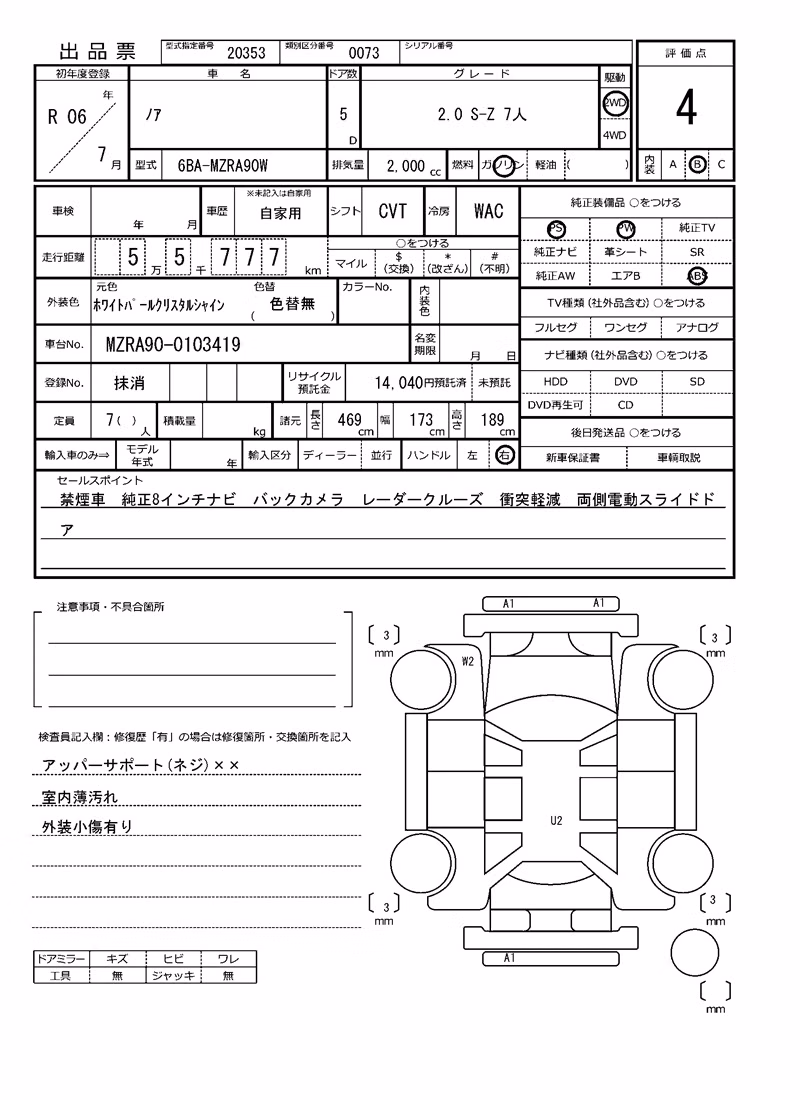 出品票 型式指定番号 20353 類別区分番号 0073 シリアル番号
評価点
4
内装 A B C
初年度登録 車名 ドア数 グレード 駆動
R 06 年 7 月 ﾉｱ 5 D 2.0 S-Z 7人 2WD
4WD
型式 6BA-MZRA90W 排気量 2,000 cc 燃料 ガソリン 軽油 ( )
車検 年 月 車歴 ※未記入は自家用 自家用 シフト CVT 冷房 WAC
走行距離 5 万 5 千 7 7 7 km
○をつける
マイル $ (交換) * (改ざん) # (不明)
外装色 元色 ﾎﾜｲﾄﾊﾟｰﾙｸﾘｽﾀﾙｼｬｲﾝ 色替 ( 色替無 ) カラーNo. 内装色
車台No. MZRA90-0103419 名変期限 月 日
登録No. 抹消 リサイクル預託金 14,040円預託済 未預託
定員 7( ) 人 積載量 kg 諸元 長さ 469 cm 幅 173 cm 高さ 189 cm
輸入車のみ⇒ モデル年式 年 輸入区分 ディーラー 並行 ハンドル 左 右
純正装備品 ○をつける
PS PW 純正TV
純正ナビ 革シート SR
純正AW エアB ABS
TV種類(社外品含む)○をつける
フルセグ ワンセグ アナログ
ナビ種類(社外品含む)○をつける
HDD DVD SD
DVD再生可 CD
後日発送品 ○をつける
新車保証書 車輌取説
セールスポイント
禁煙車 純正8インチナビ バックカメラ レーダークルーズ 衝突軽減 両側電動スライドド
ア
注意事項・不具合箇所
検査員記入欄：修復歴「有」の場合は修復箇所・交換箇所を記入
アッパーサポート(ネジ)××
室内薄汚れ
外装小傷有り
ドアミラー キズ ヒビ ワレ
工具 無 ジャッキ 無
A1 A1
[ 3 ] mm
[ 3 ] mm
W2
U2
[ 3 ] mm
[ 3 ] mm
A1
[ ] mm